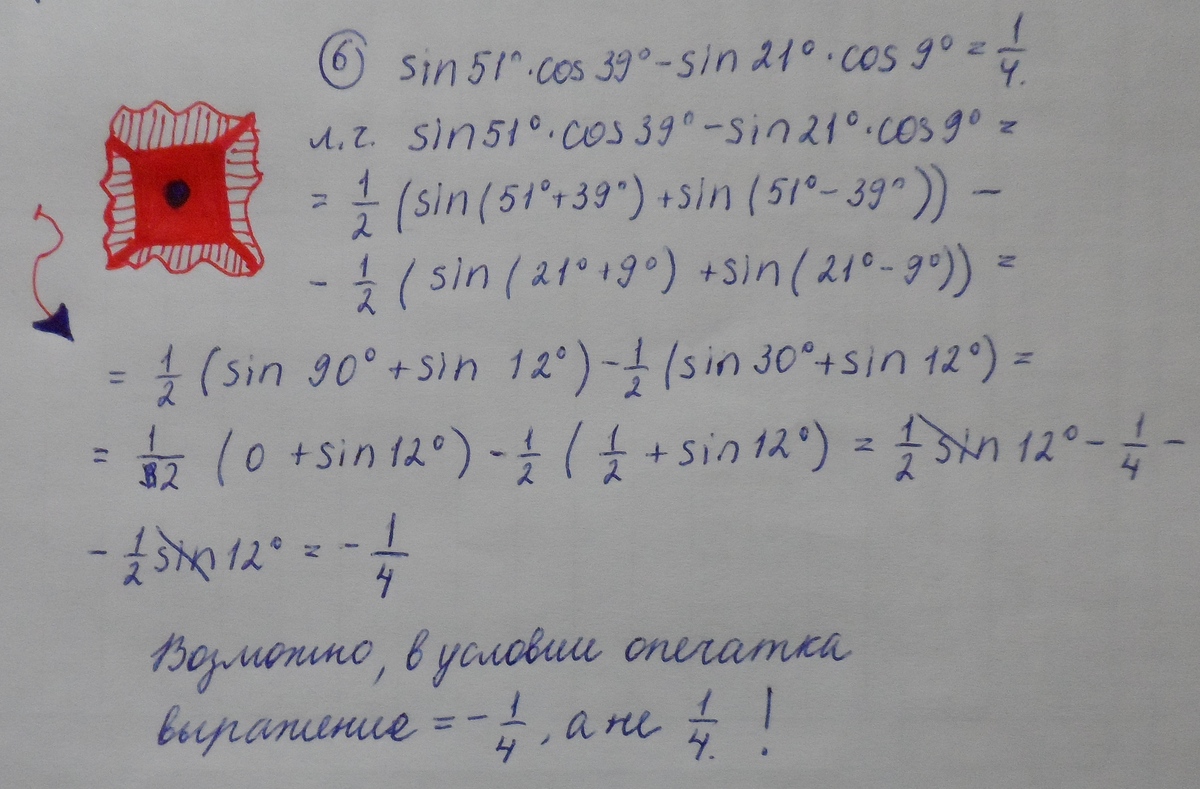 6 sin 51° · cos 39° - sin 21° · cos 9° = 1/4.
л.ч. sin 51° · cos 39° - sin 21° · cos 9° =
= 1/2 (sin (51° + 39°) + sin (51° - 39°)) -
- 1/2 ( sin ( 21° + 9°) + sin ( 21° - 9°)) =
= 1/2 (sin 90° + sin 12°) - 1/2 (sin 30° + sin 12°) =
= 1/2 (0 + sin 12°) - 1/2 ( 1/2 + sin 12°) = 1/2 sin 12° - 1/4 -
- 1/2 sin 12° = - 1/4
Возможно, в условии опечатка
выражение = - 1/4, а не 1/4. !